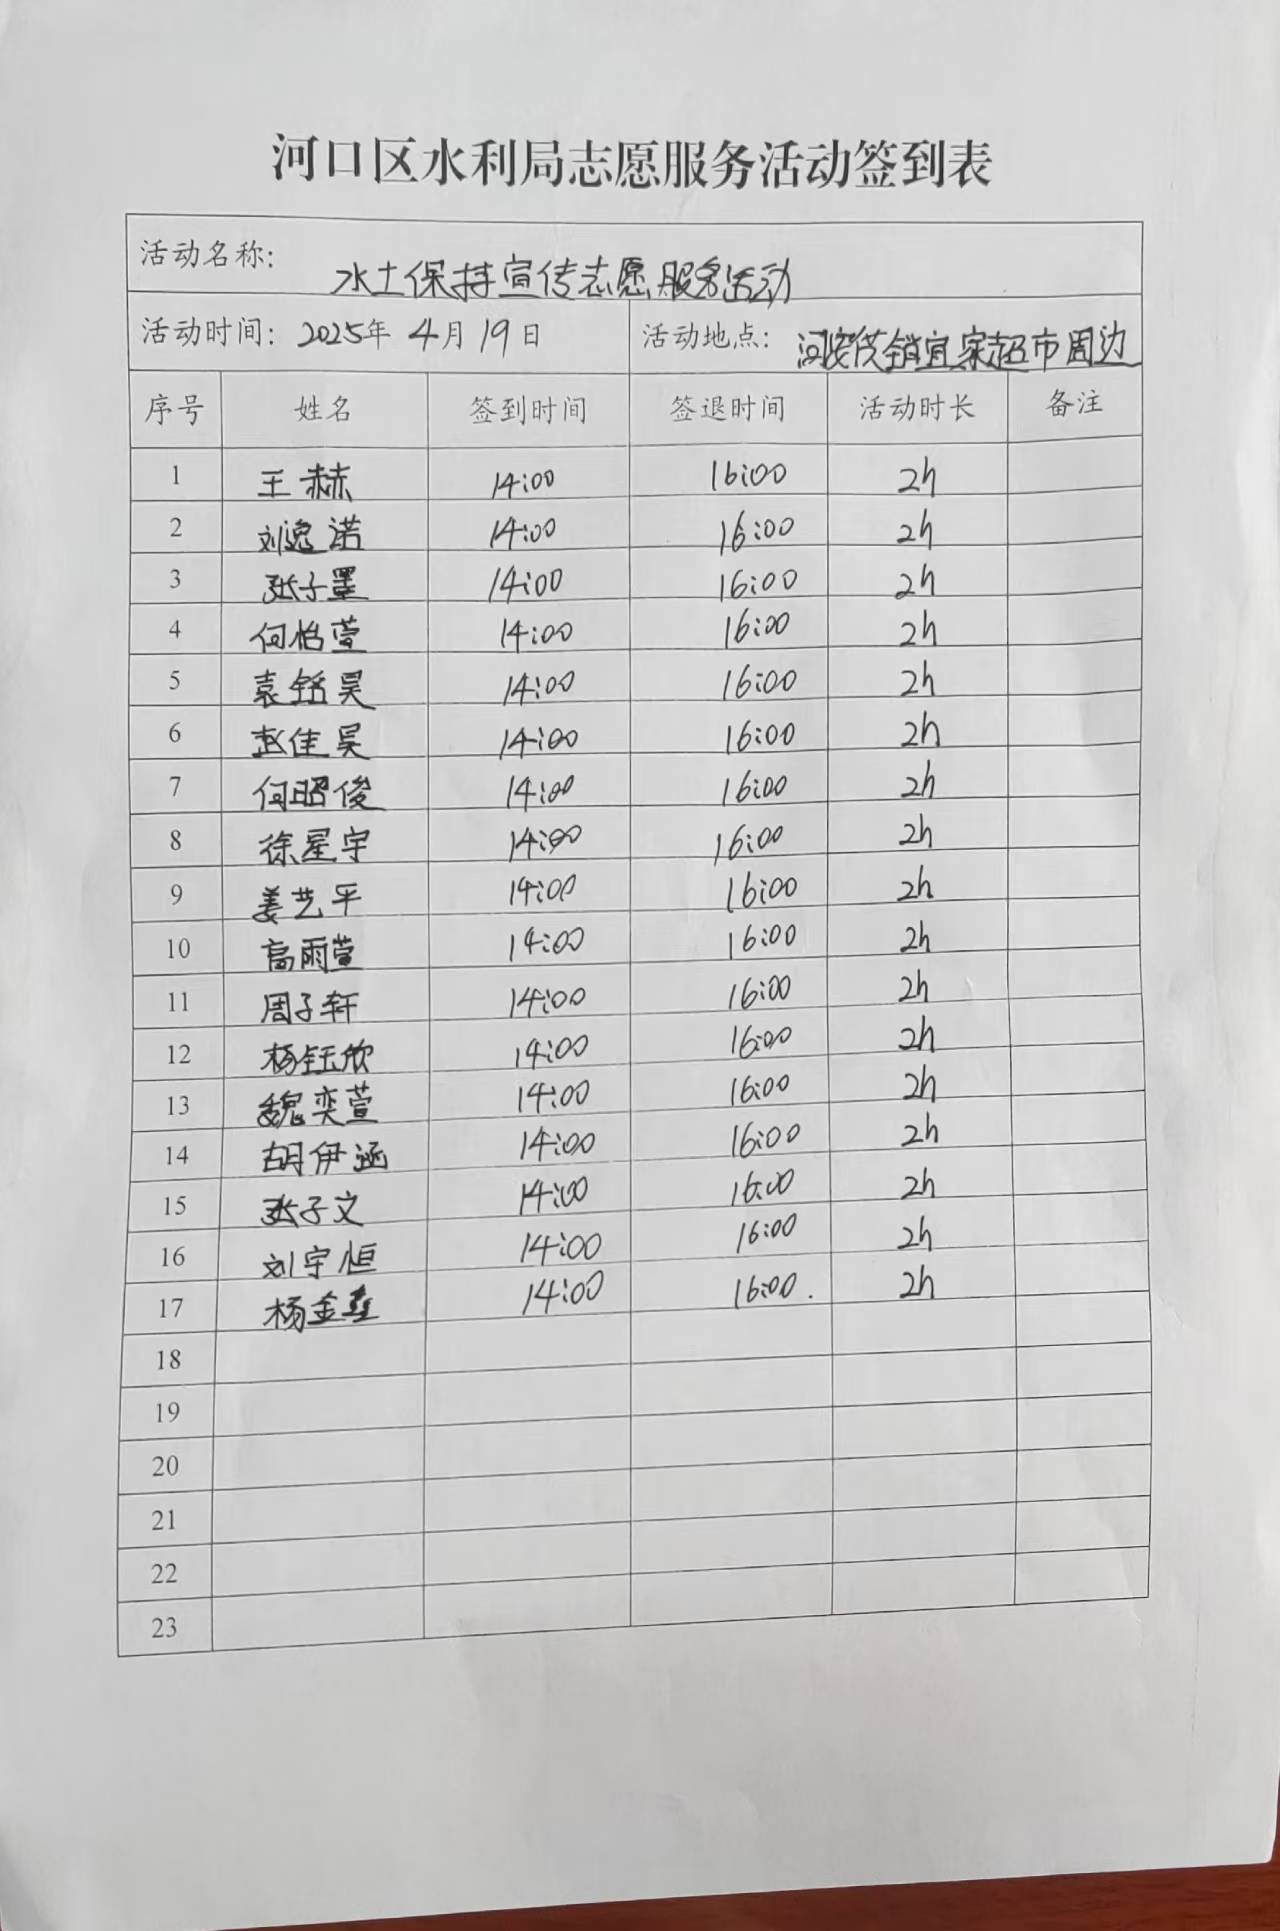 河口区水利局志愿服务活动签到表
活动名称: 水土保持宣传志愿服务活动
活动时间: 2025年 4月 19日 活动地点: 河安供销宜家超市周边
序号 姓名 签到时间 签退时间 活动时长 备注
1 王赫 14:00 16:00 2h
2 刘逸诺 14:00 16:00 2h
3 张子墨 14:00 16:00 2h
4 何怡萱 14:00 16:00 2h
5 袁铭昊 14:00 16:00 2h
6 赵佳昊 14:00 16:00 2h
7 何昭俊 14:00 16:00 2h
8 徐星宇 14:00 16:00 2h
9 姜艺平 14:00 16:00 2h
10 高雨萱 14:00 16:00 2h
11 周子轩 14:00 16:00 2h
12 杨钰欣 14:00 16:00 2h
13 魏奕萱 14:00 16:00 2h
14 胡伊涵 14:00 16:00 2h
15 张子文 14:00 16:00 2h
16 刘宇恒 14:00 16:00 2h
17 杨金鑫 14:00 16:00. 2h
18
19
20
21
22
23